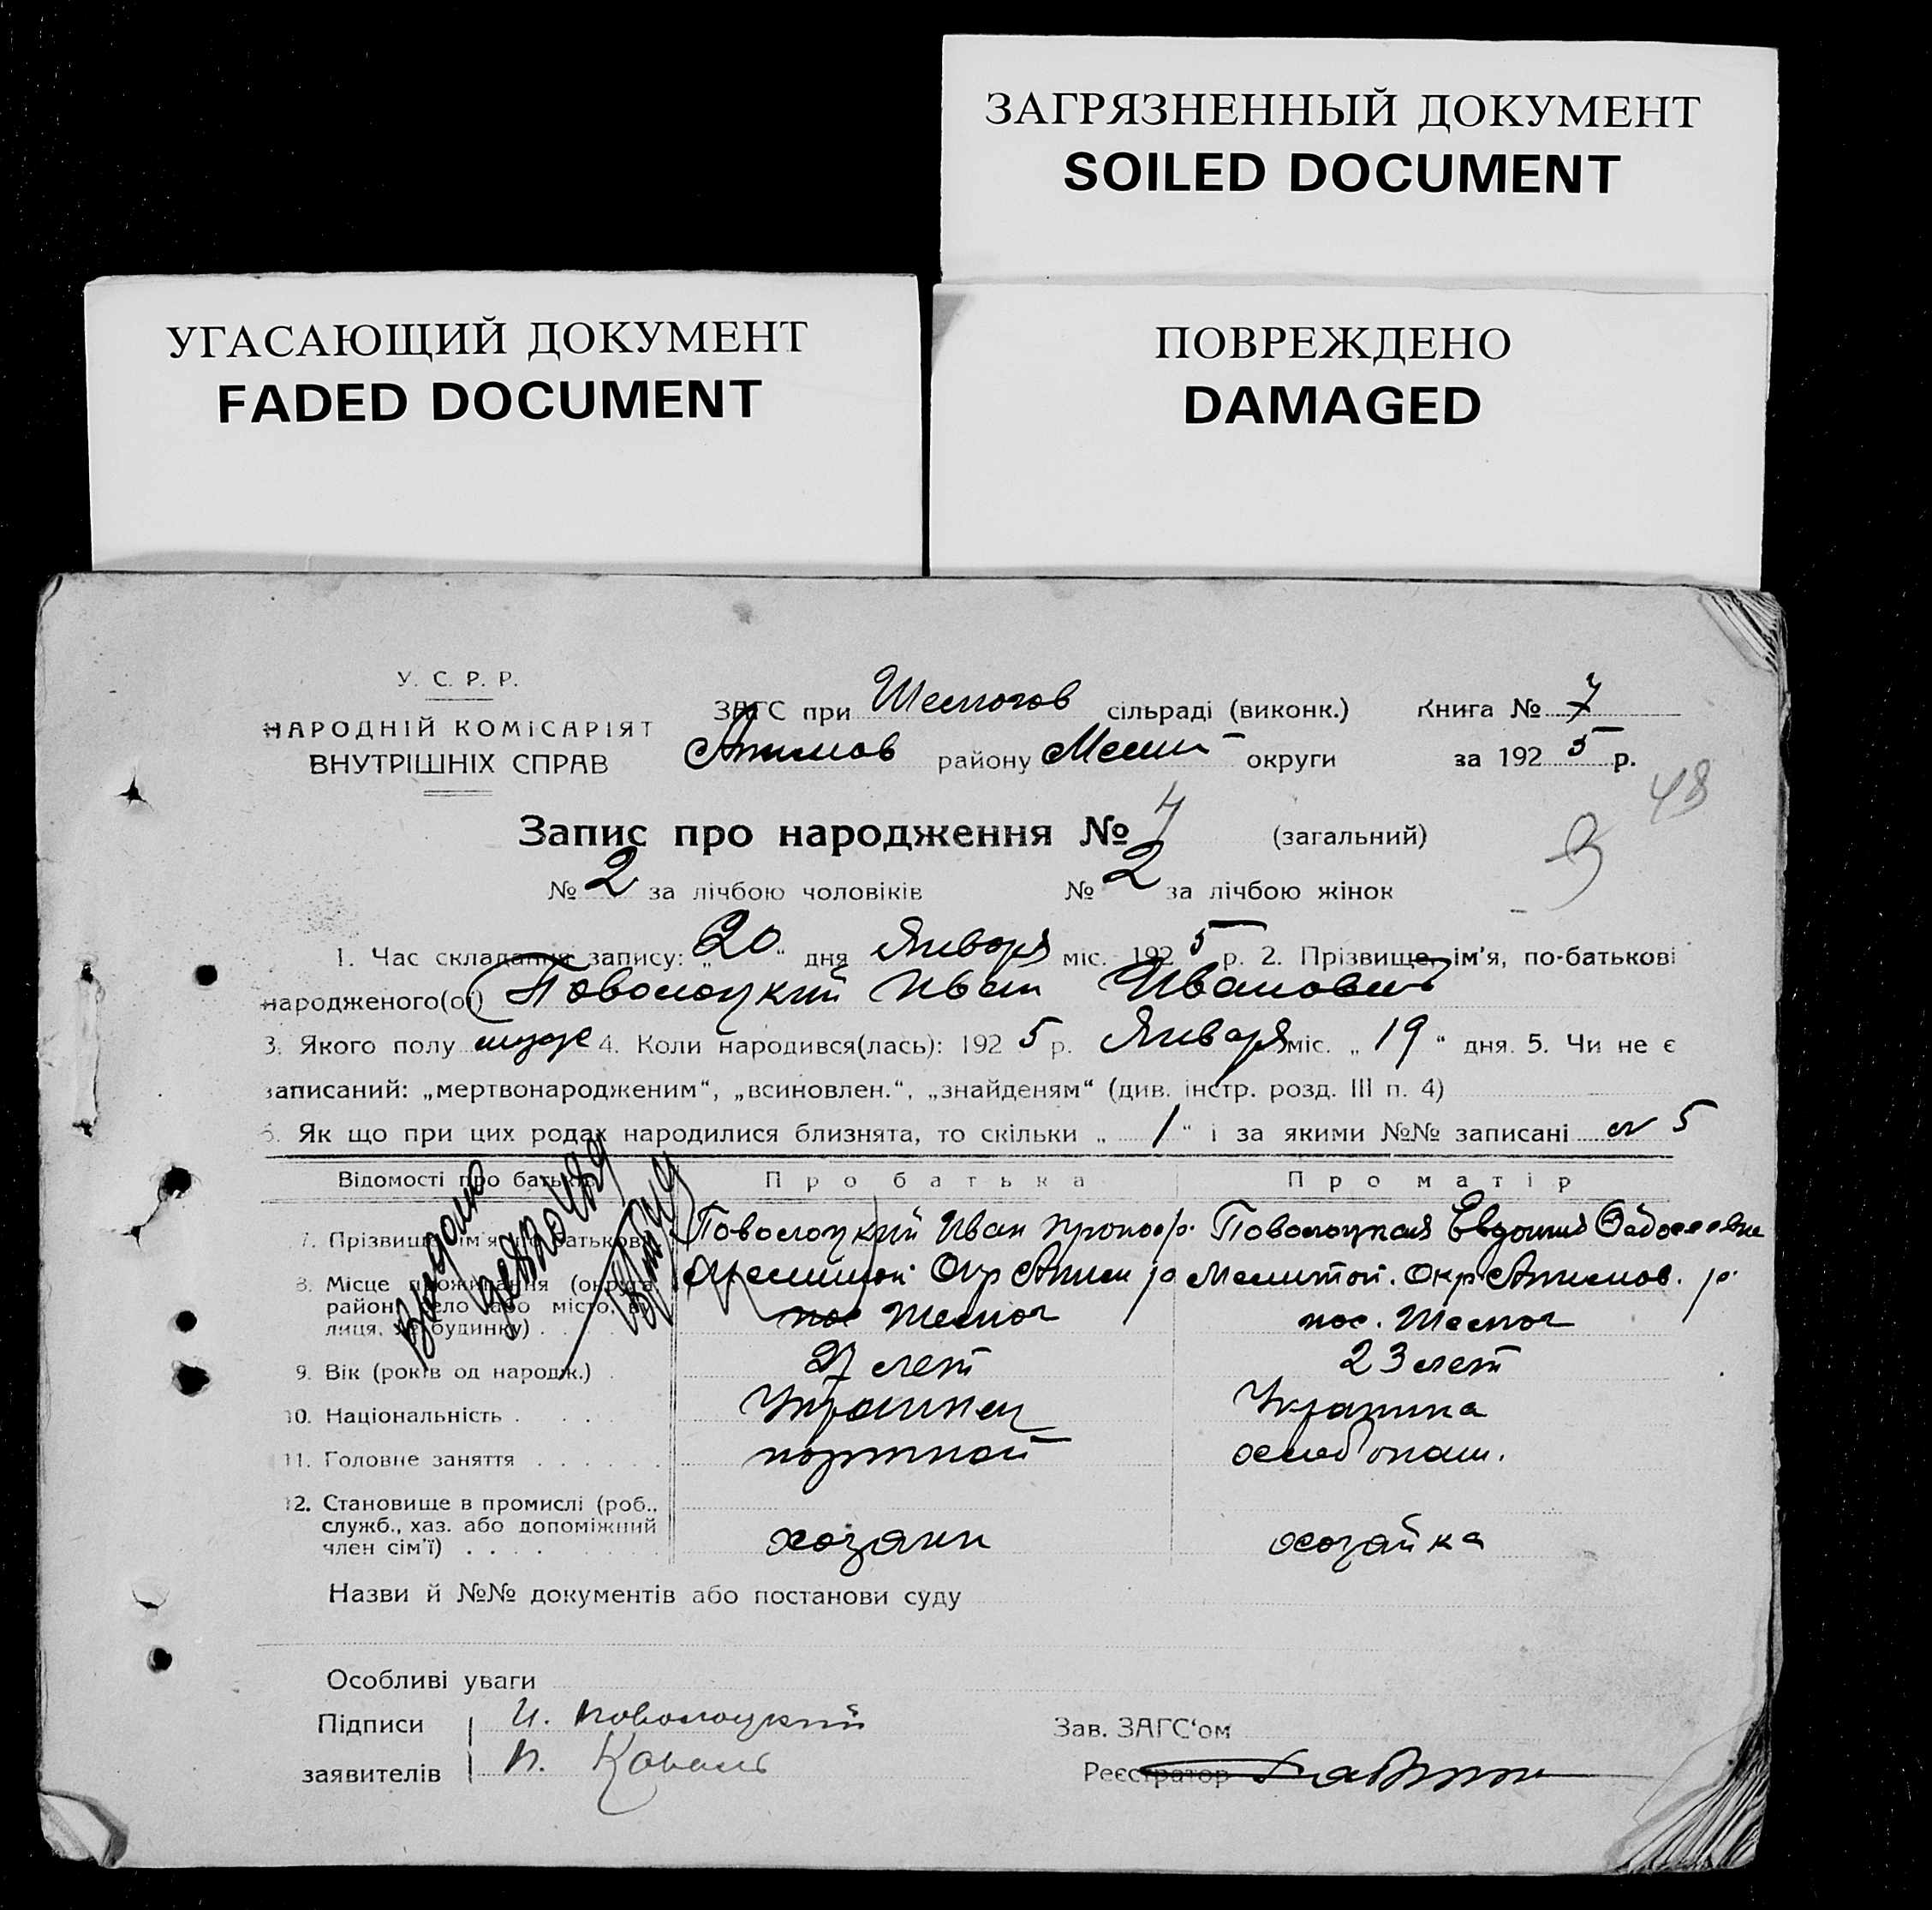 ЗАГРЯЗНЕННЫЙ ДОКУМЕНТ
SOILED DOCUMENT
УГАСАЮЩИЙ ДОКУМЕНТ
FADED DOCUMENT
ПОВРЕЖДЕНО
DAMAGED
У. С. Р. Р.
НАРОДНІЙ КОМІСАРІЯТ
ВНУТРІШНІХ СПРАВ
ЗАГС при сільраді (виконк.) Книга № 7
Акимов району Мелит округи за 1925 р.
48
Запис про народження № 4 (загальний)
№ 2 за лічбою чоловіків № 2 за лічбою жінок
1. Час складання запису: „20“ дня Января міс. 1925 р. 2. Прізвище, ім'я, по-батькові
народженого(ої) Поволоцкий Иван Иванович
3. Якого полу муж 4. Коли народився(лась): 1925 р. Января міс. „19“ дня. 5. Чи не є
записаний: „мертвонародженим“, „всиновлен.“, „знайденям“ (див. інстр. розд. III п. 4)
6. Як що при цих родах народилися близнята, то скільки „1“ і за якими №№ записані 5
Відомості про батьків Про батька Про матір
7. Прізвище, ім'я, по батькові Поволоцкий Иван Поволоцкая Евдокия
8. Місце проживання (округа, Мелитоп. Окр Аким р. Мелитоп. Окр Акимов. р.
район, село або місто, ву-
лиця, № будинку) пос пос.
9. Вік (років од народж.) 27 лет 23 лет
10. Національність Украинец Украинка
11. Головне заняття портной
12. Становище в промислі (роб.,
служб., хаз. або допоміжний
член сім'ї) хозяин хозяйка
Назви й №№ документів або постанови суду
Особливі уваги
Підписи И. Поволоцкий Зав. ЗАГС'ом
заявителів П. Коваль Реєстратор